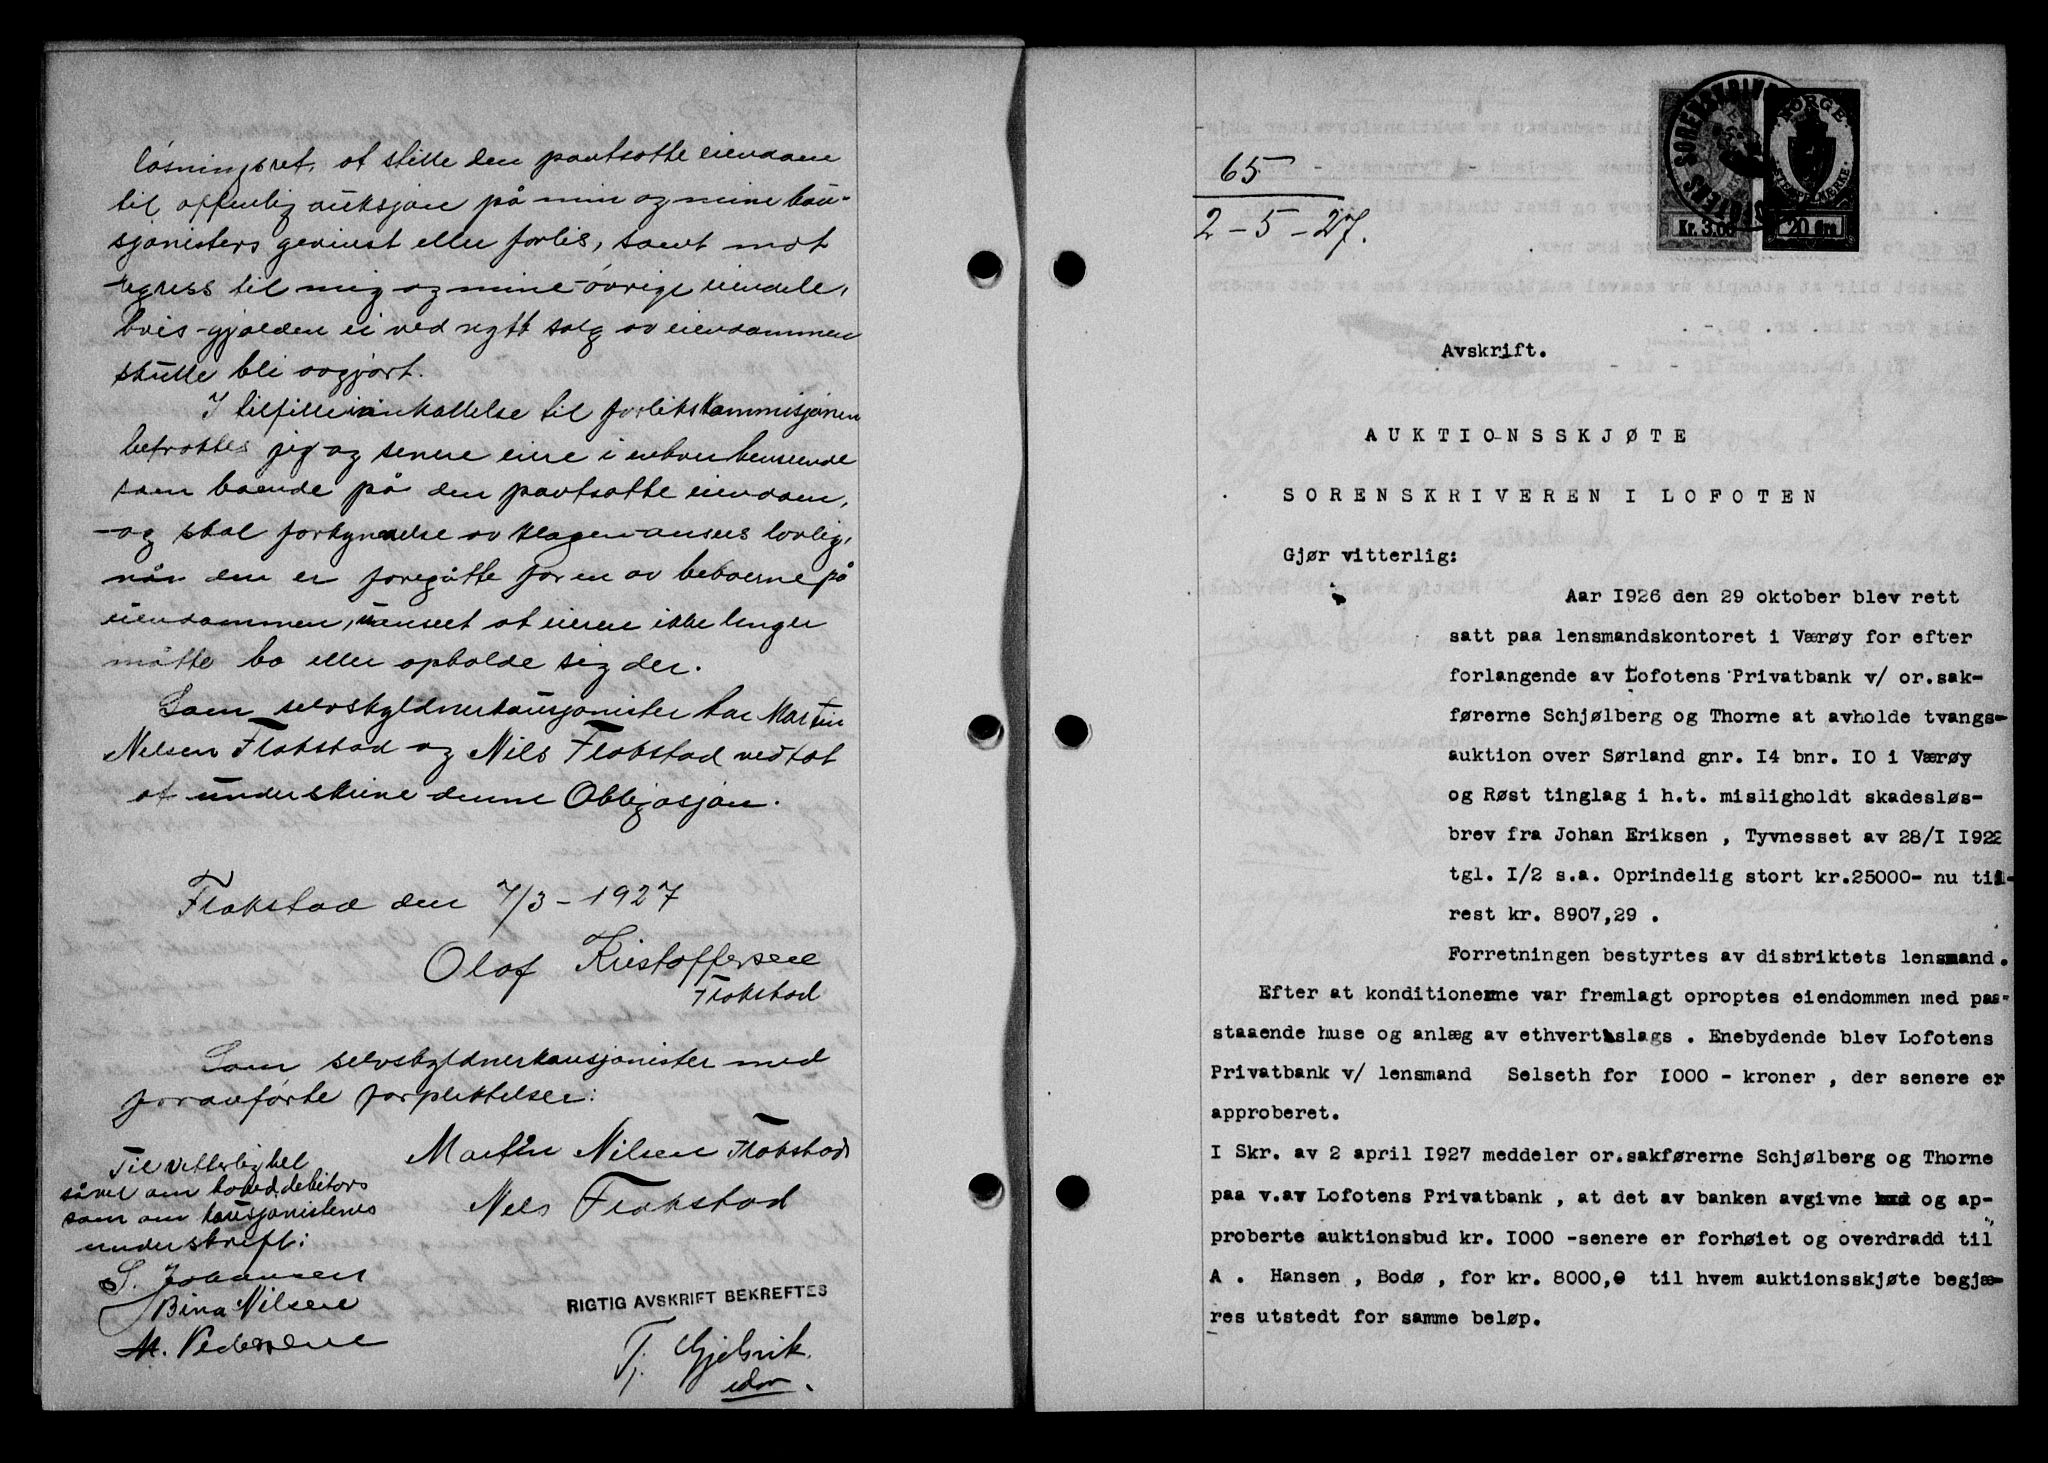 løsningsret, at stille den pantsatte eiendom
til offentlig auksjon på min og mine kau-
sjonisters gevinst eller forlis, samt mot
regress til mig og mine øvrige eiendele,
hvis gjælden ei ved nytt salg av eiendommen
skulle bli avgjort.
I tilfelle innkallelse til forlikskommisjonen
betraktes jeg og senere eiere i enhver henseende
som boende på den pantsatte eiendom,
og skal forkynnelse av klagen ansees lovlig,
når den er foregåtte for en av beboerne på
eiendommen, uanseet at eieren ikke lenger
måtte bo eller opholde sig der.
Som selvskyldnerkausjonister har Martin
Nelsen Flakstad og Nils Flakstad vedtat
at underskrive denne Obligasjon.
Flakstad den 7/3 - 1927
Olaf Kristoffersen
Flakstad
Som selvskyldnerkausjonister med
foranførte forpliktelser:
Martin Nilsen Flakstad
Nils Flakstad
Til vitterlighet
såvel om hoved debitors
som om kausjonistenes
underskrift:
S. Johansen
Bina Nilsen
M. Pedersen
RIGTIG AVSKRIFT BEKREFTES
T. Gjelsvik
edsv.
65
2-5-27.
SORENSKRIVEREN
LOFOTEN
Kr. 3.00
NORGE
STEMPELMÆRKE
20 Øre
Avskrift.
AUKTIONSSKJØTE
SORENSKRIVEREN I LOFOTEN
Gjør vitterlig:
Aar 1926 den 29 oktober blev rett
satt paa lensmandskontoret i Værøy for efter
forlangende av Lofotens Privatbank v/ or.sak-
førerne Schjølberg og Thorne at avholde tvangs-
auktion over Sørland gnr. 14 bnr. 10 i Værøy
og Røst tinglag i h.t. misligholdt skadesløs-
brev fra Johan Eriksen , Tyvnesset av 28/I 1922
tgl. I/2 s.a. Oprindelig stort kr.25000- nu til
rest kr. 8907,29 .
Forretningen bestyrtes av distriktets lensmand.
Efter at konditionerne var fremlagt oproptes eiendommen med paa-
staaende huse og anlæg av ethvert slags . Enebydende blev Lofotens
Privatbank v/ lensmand Selseth for 1000 - kroner , der senere er
approberet.
I Skr. av 2 april 1927 meddeler or.sakførerne Schjølberg og Thorne
paa v.av Lofotens Privatbank , at det av banken avgivne bud og ap-
proberte auktionsbud kr. 1000 -senere er forhøiet og overdradd til
A . Hansen , Bodø , for kr. 8000,0 til hvem auktionsskjøte begjæ-
res utstedt for samme beløp.